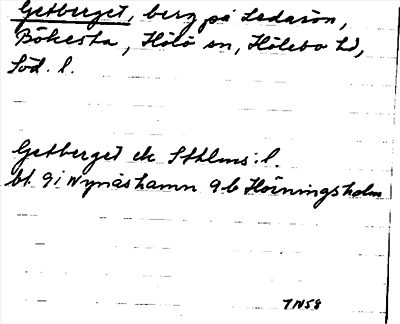 Getberget, berg på Ledarön,
Bökesta, Hölö sn, Hölebo hd,
Söd. l.
Getberget ek Sthlms. l.
bl. 9i Nynäshamn 9b Hörningsholm
TN58